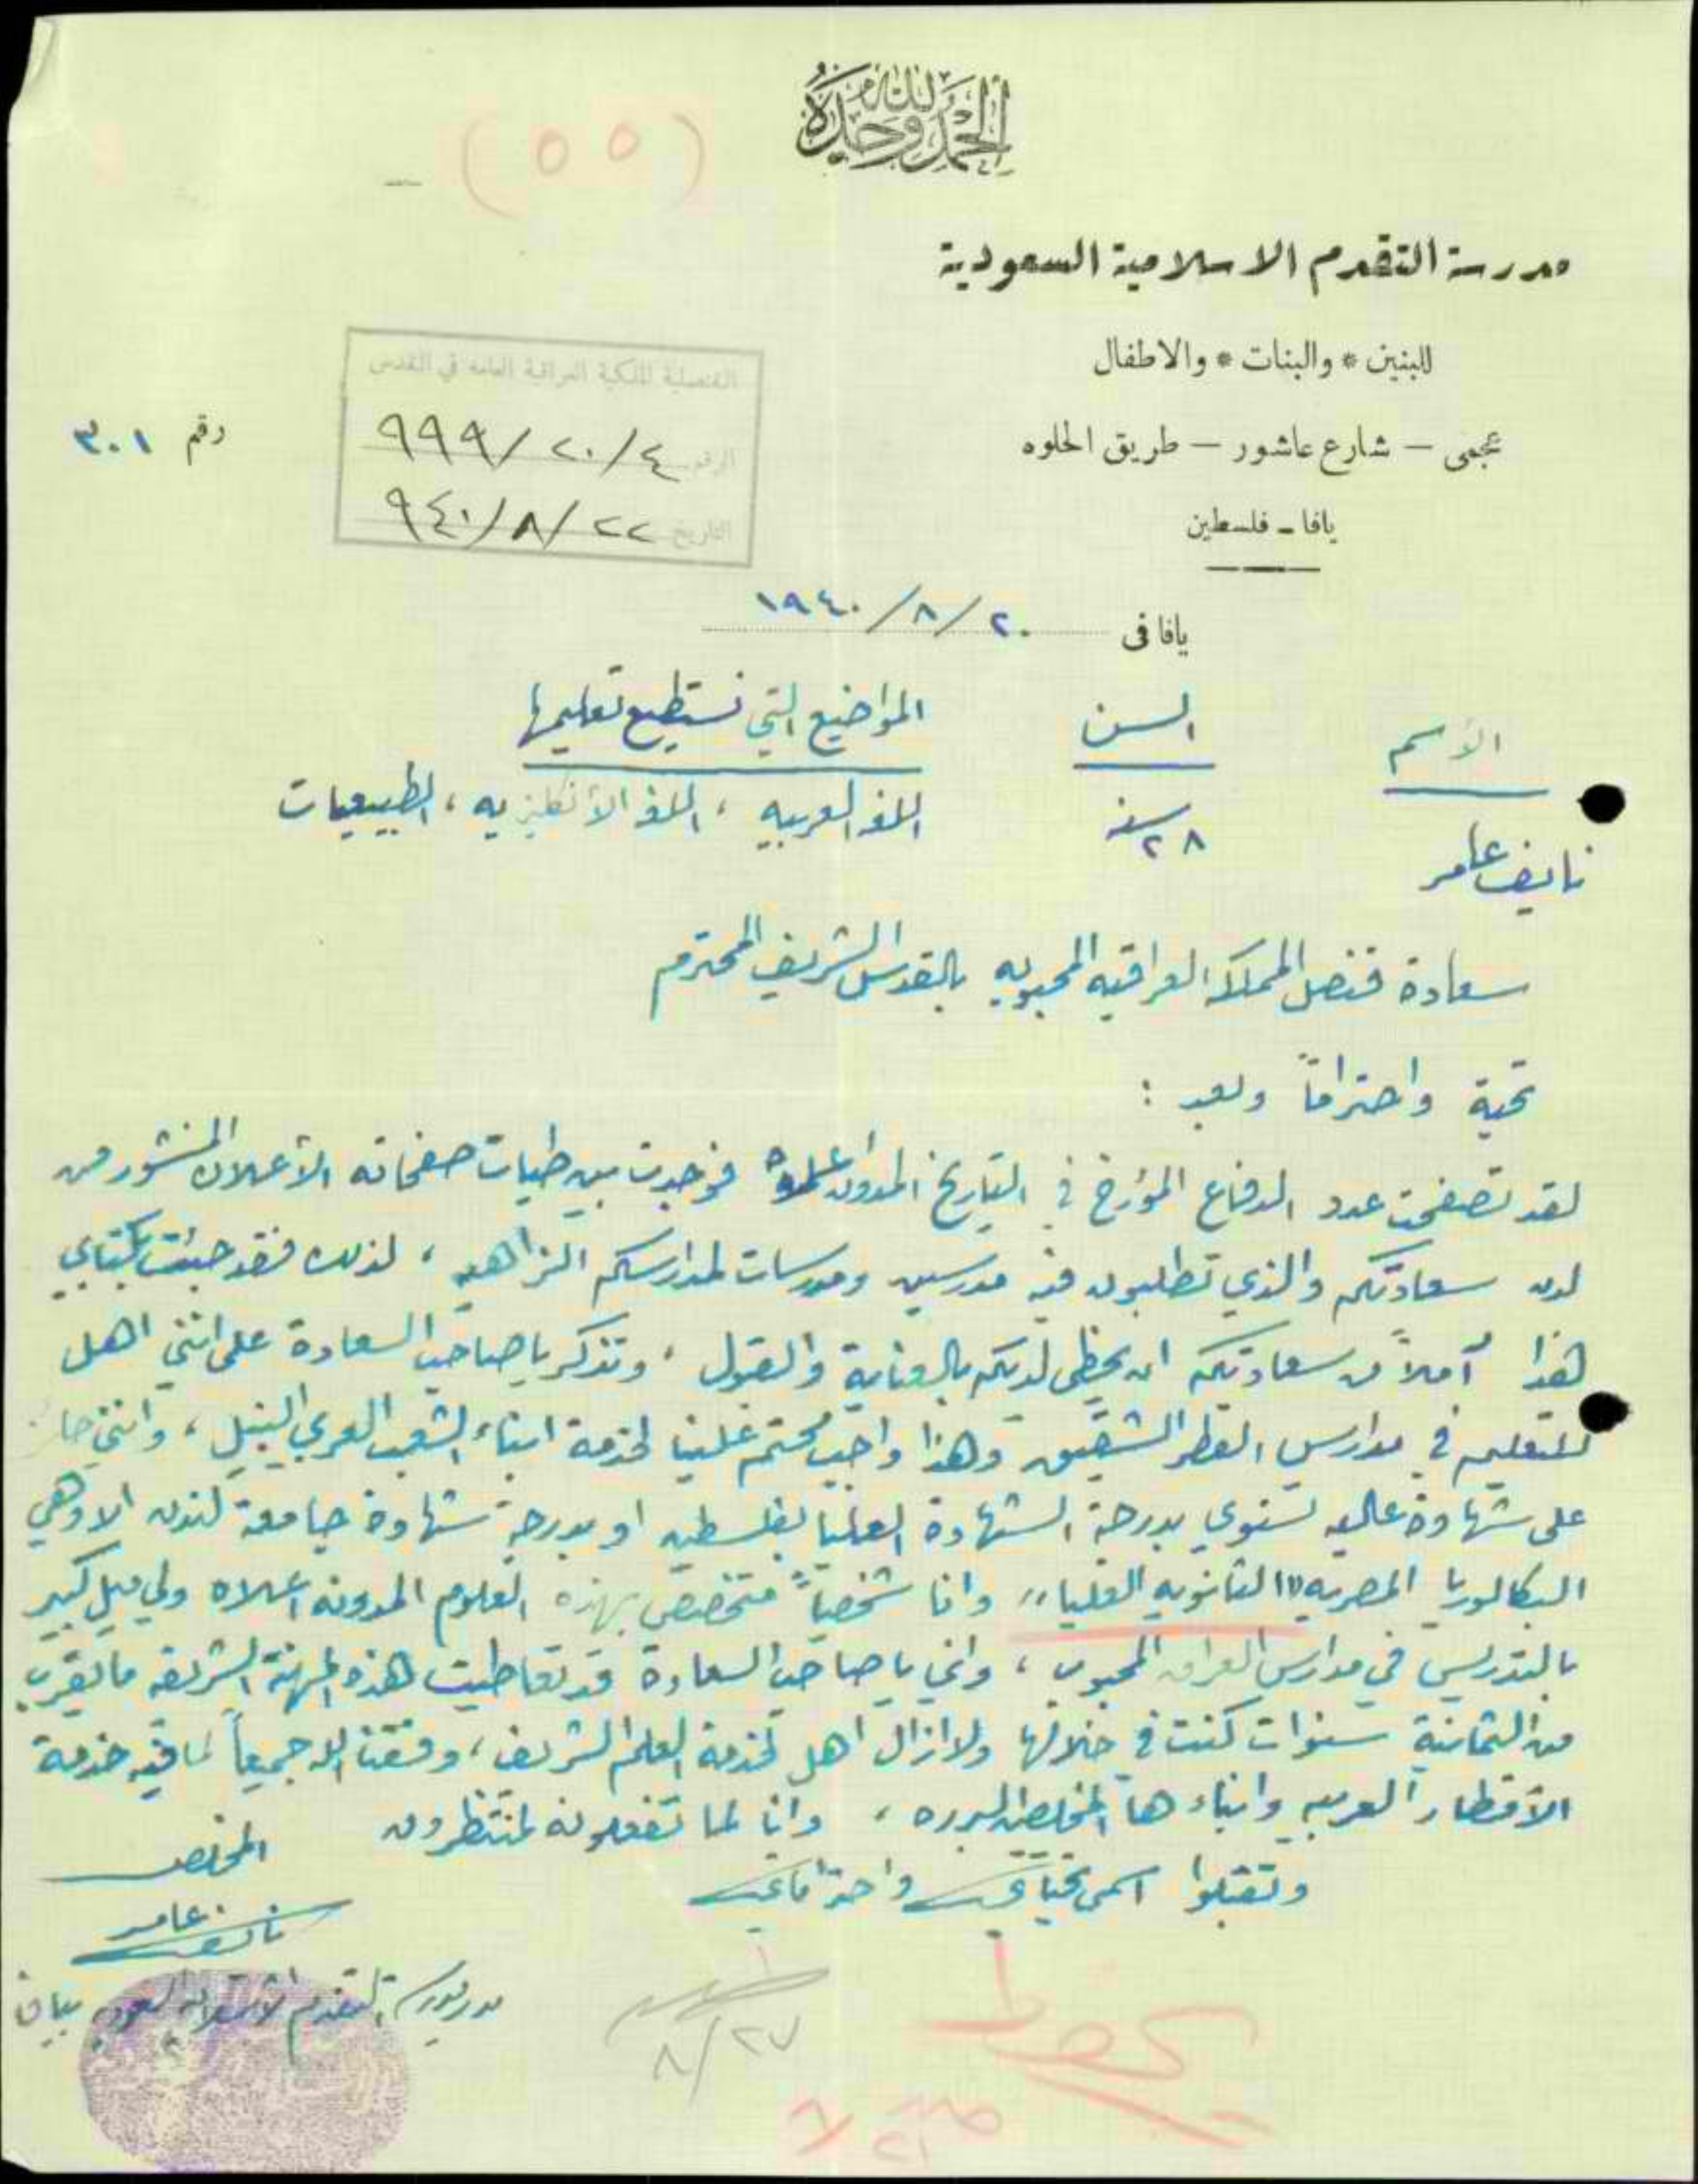 الحمد لله وحده
(٥٥)
مدرسة التقدم الاسلامية السعودية
للبنين * والبنات * والاطفال
عجمي – شارع عاشور – طريق الحلوه
يافا – فلسطين
رقم ٣٠١
القنصلية الملكية العراقية العامة في القدس
الرقم ٩٩٩/٢٠/٤
التاريخ ٩٤٠/٨/٢٢
يافا فى ٢٠/٨/١٩٤٠
الأسم السن المواضيع التي نستطيع تعليمها
نايف عامر ٢٨ سنه اللغه العربيه ، اللغه الأنكليزيه ، الطبيعيات
سعادة قنصل المملكه العراقيه المحبوبه بالقدس الشريف المحترم
تحية واحتراماً وبعد :
لقد تصفحت عدد الدفاع المؤرخ في التاريخ المدون اعلاه فوجدت بين طيات صفحاته الأعلان المنشور من
لدن سعادتكم والذي تطلبون فيه مدرسين ومدرسات لمدارسكم الزاهيه ، لذلك فقد جئت بكتابي
هذا آملاً من سعادتكم ان يحظى لديكم بالعناية والقبول ، وتذكر يا صاحب السعادة على انني اهل
للتعليم في مدارس القطر الشقيق وهذا واجب محتم علينا لخدمة ابناء الشعب العربي النبيل ، وانني حائز
على شهادة عاليه تستوي بدرجة الشهادة العليا بفلسطين او بدرجة شهادة جامعة لندن الا وهي
البكالوريا المصريه "الثانويه العليا" وانا شخصياً متخصص بهذه العلوم المدونه اعلاه ولي ميل كبير
بالتدريس في مدارس العراق المحبوب ، واني يا صاحب السعادة قد تعاطيت هذه المهنة الشريفه ما يقرب
من الثمانية سنوات كنت في خلالها ولا ازال اهل لخدمة العلم الشريف ، وفقنا الله جميعاً لما فيه خدمة
الأقطار العربيه وابناءها المخلصين البرره ، وانا لما تفعلونه لمنتظرون
وتقبلوا اسمى تحياتي واحتراماتي
المخلص
نايف عامر
مدير مدرسة التقدم الاسلاميه السعوديه بيافا
٢٧/٨
يحفظ